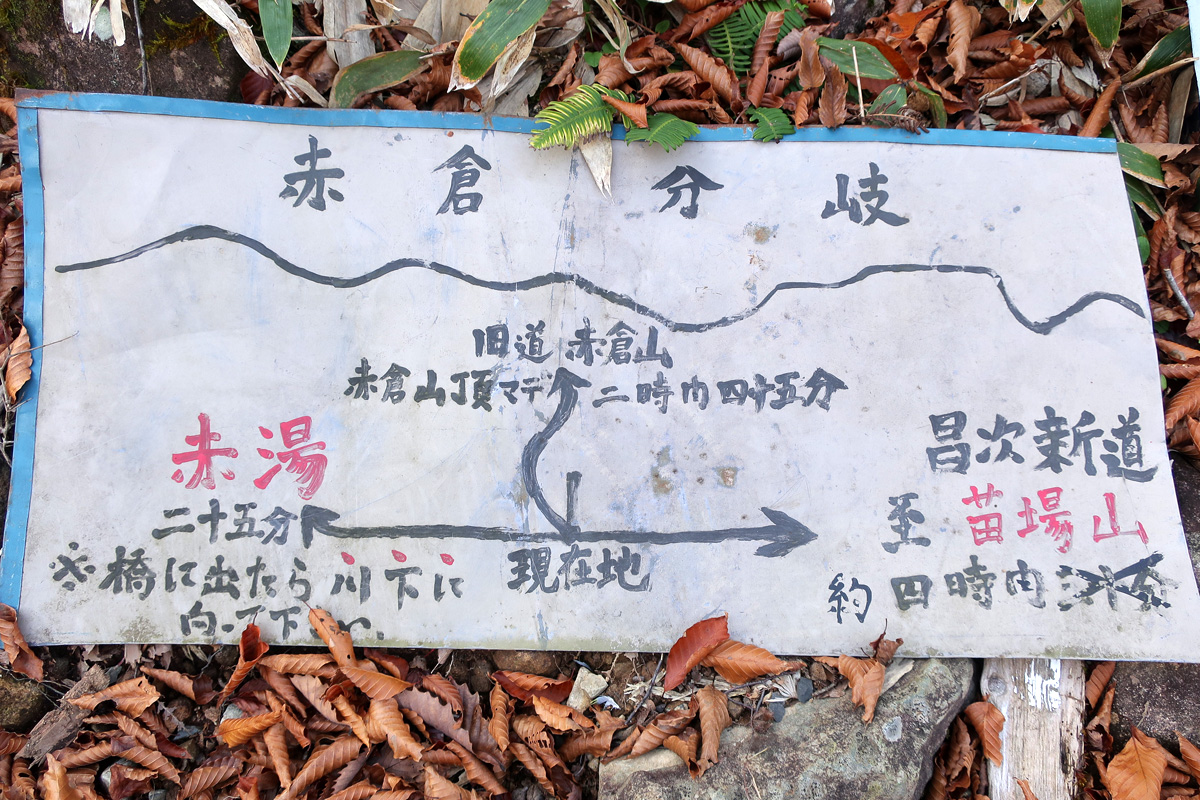 赤倉分岐
旧道 赤倉山
赤倉山頂マデ 二時巾四十五分
赤湯
二十五分
※橋に出たら川下に
向って下さい。
現在地
昌次新道
至 苗場山
約四時内